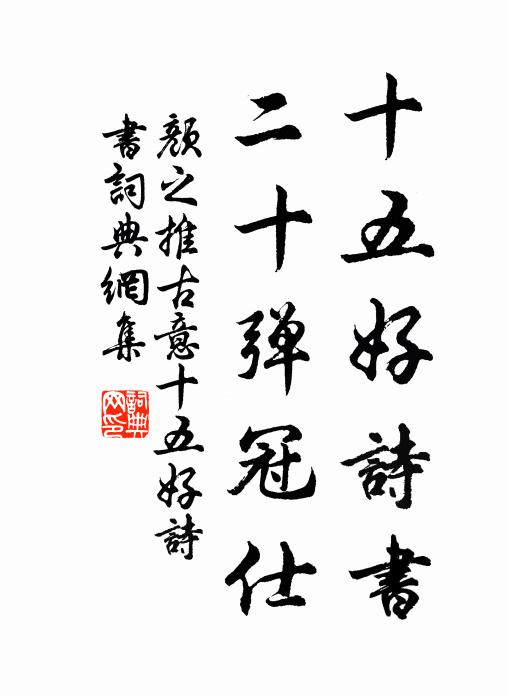 十五好詩書
二十弹冠仕
顏之推古意十五好詩
書詞典網集
詞典
网印